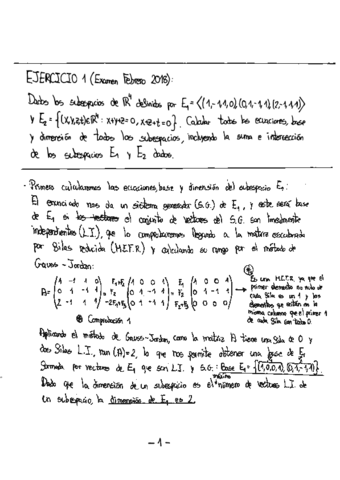 EJERCICIO 1 (Examen Febrero 2016):
Dados los subespacios de ℝ⁴ definidos por E₁=⟨(1,-1,1,0)(0,1,-1,1)(2,-1,1,1)⟩
y E₂={(x,y,z,t)∈ℝ⁴: x+y+z=0, x+z+t=0}. Calcular todas las ecuaciones, base
y dimensión de todos los subespacios, incluyendo la suma e intersección
de los subespacios E₁ y E₂ dados.
· Primero calcularemos las ecuaciones, base y dimensión del subespacio E₁:
El enunciado nos da un sistema generador (S.G.) de E₁, y este será base
de E₁ si los vectores el conjunto de vectores del S.G. son linealmente
independientes (L.I.), lo que lo comprobaremos llegando a la matriz escalonada
por filas reducida (M.E.F.R.) y calculando su rango por el método de
Gauss-Jordan:
Es una M.E.F.R. ya que el
primer elemento no nulo de
cada fila es un 1 y los
elementos que están en la
misma columna que el primer 1
de cada fila son todo 0.
Comprobación 1
Aplicando el método de Gauss-Jordan, como la matriz A tiene una fila de 0 y
dos filas L.I., ran(A)=2, lo que nos permite obtener una base de E₁
formada por vectores de E₁ que son L.I. y S.G.: Base E₁ = {(1,0,0,1),(0,1,-1,1)}
máximo
Dado que la dimensión de un subespacio es el número de vectores L.I. de
un subespacio, la dimensión de E₁ es 2.
-1-